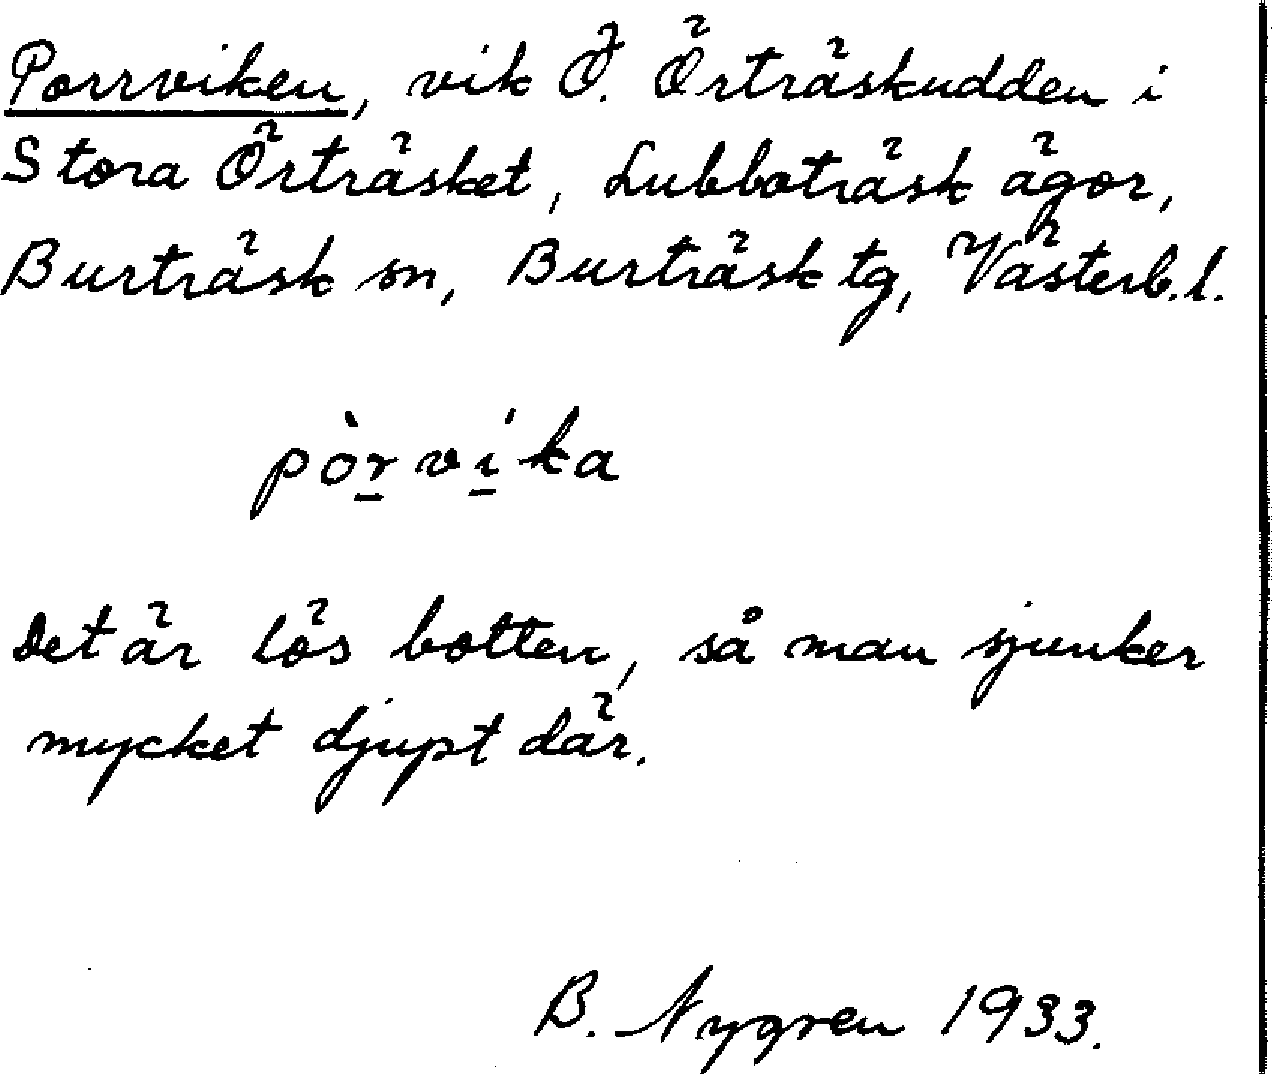 Porrviken, vik Ö. Örträskudden i
Stora Örträsket, Lubboträsk ägor,
Burträsk sn, Burträsk tg, Västerb.l.
pòrvika
Det är lös botten, så man sjunker
mycket djupt där.
B. Nygren 1933.